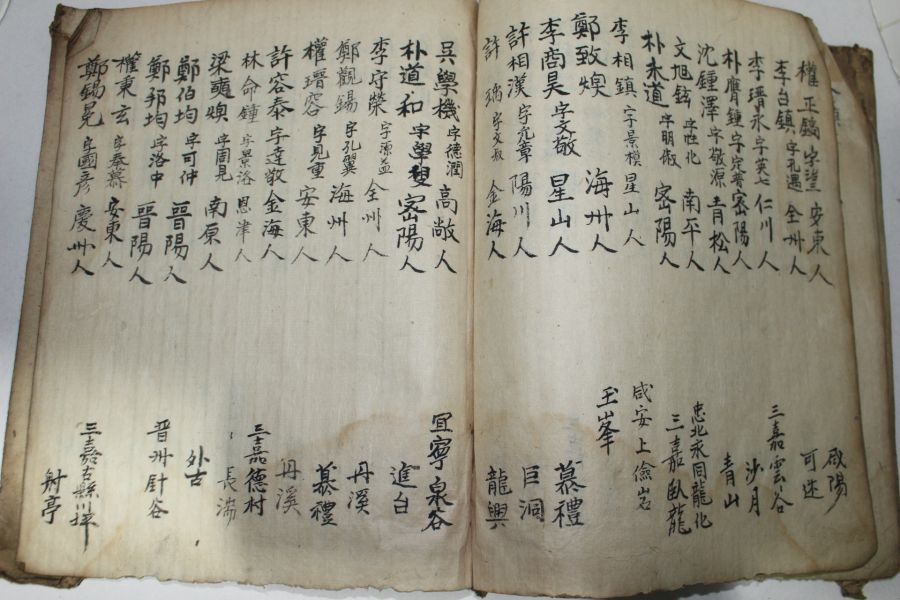 權正鎬 字 安東人 咸陽
李台鎮 字孔遇 全州人 可述
李瑨永 字英七 仁川人 三嘉雲谷
朴膺鍾 字 密陽人 沙月
沈鍾澤 字敬源 青松人 青山
文旭鉉 字性化 南平人 忠北永同龍化
朴永道 字明俶 密陽人 三嘉臥龍
李相鎮 字景模 星山人 咸安上儉岩
鄭致煥 海州人 玉峯
李商昊 字文敬 星山人 慕禮
許相漢 字允章 陽川人 巨洞
許瑀 字文叔 金海人 龍興
吳學機 字德潤 高敞人 宜寧泉谷
朴道和 字學叟 密陽人 進台
李守榮 字源益 全州人 丹溪
鄭觀錫 字孔翼 海州人 慕禮
權瑨容 字見重 安東人 丹溪
許容泰 字達敬 金海人 三嘉德村
林命鍾 字景洛 恩津人 長
梁奭煥 字周見 南原人 外古
鄭伯均 字可仲 晉陽人
鄭邦均 字洛中 晉陽人 晋州針谷
權秉玄 字奉慕 安東人 三嘉古縣川坪
鄭錫冕 字國彦 慶州人 射亭